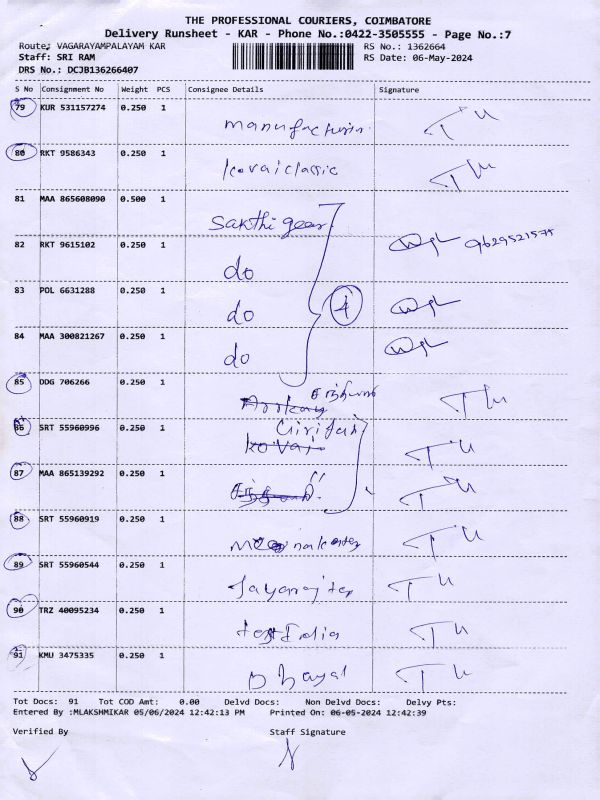 THE PROFESSIONAL COURIERS, COIMBATORE
Delivery Runsheet - KAR - Phone No.:0422-3505555 - Page No.:7
Route: VAGARAYAMPALAYAM KAR RS No.: 1362664
Staff: SRI RAM RS Date: 06-May-2024
DRS No.: DCJB136266407
S No Consignment No Weight PCS Consignee Details Signature
79 KUR 531157274 0.250 1
80 RKT 9586343 0.250 1 kovai classic
81 MAA 865608090 0.500 1 Sakthi gear 9629521575
82 RKT 9615102 0.250 1 do
83 POL 6631288 0.250 1 do 4
84 MAA 300821267 0.250 1 do
85 DDG 706266 0.250 1
86 SRT 55960996 0.250 1 kovai
87 MAA 865139292 0.250 1
88 SRT 55960919 0.250 1
89 SRT 55960544 0.250 1
90 TRZ 40095234 0.250 1
91 KMU 3475335 0.250 1
Tot Docs: 91 Tot COD Amt: 0.00 Delvd Docs: Non Delvd Docs: Delvy Pts:
Entered By :MLAKSHMIKAR 05/06/2024 12:42:13 PM Printed On: 06-05-2024 12:42:39
Verified By Staff Signature